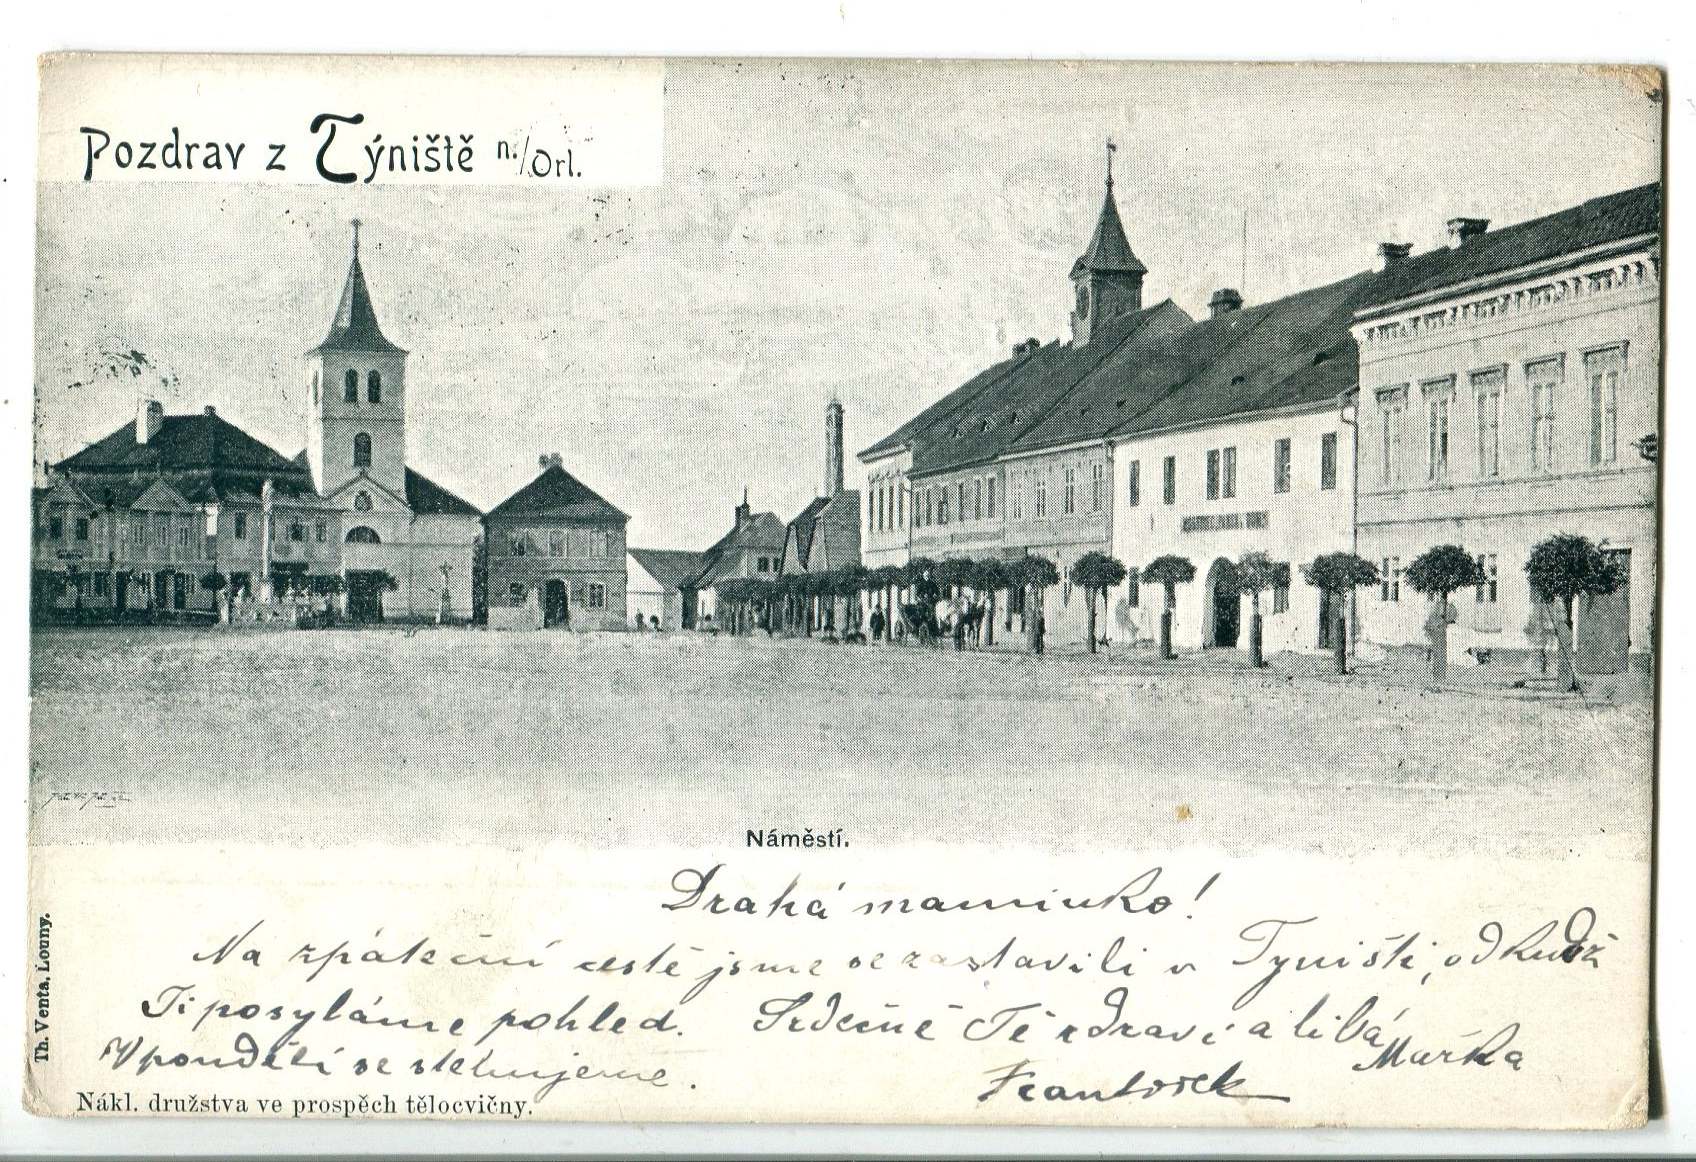 Pozdrav z Týniště n./Orl.
Náměstí.
Drahá maminko!
Na zpáteční cestě jsme se zastavili v Týništi, odkudž
Ti posyláme pohled. Srdečně Tě zdraví a líbá
V pondělí se stěhujeme. Mařka
František
Nákl. družstva ve prospěch tělocvičny.
Th. Venta, Louny.